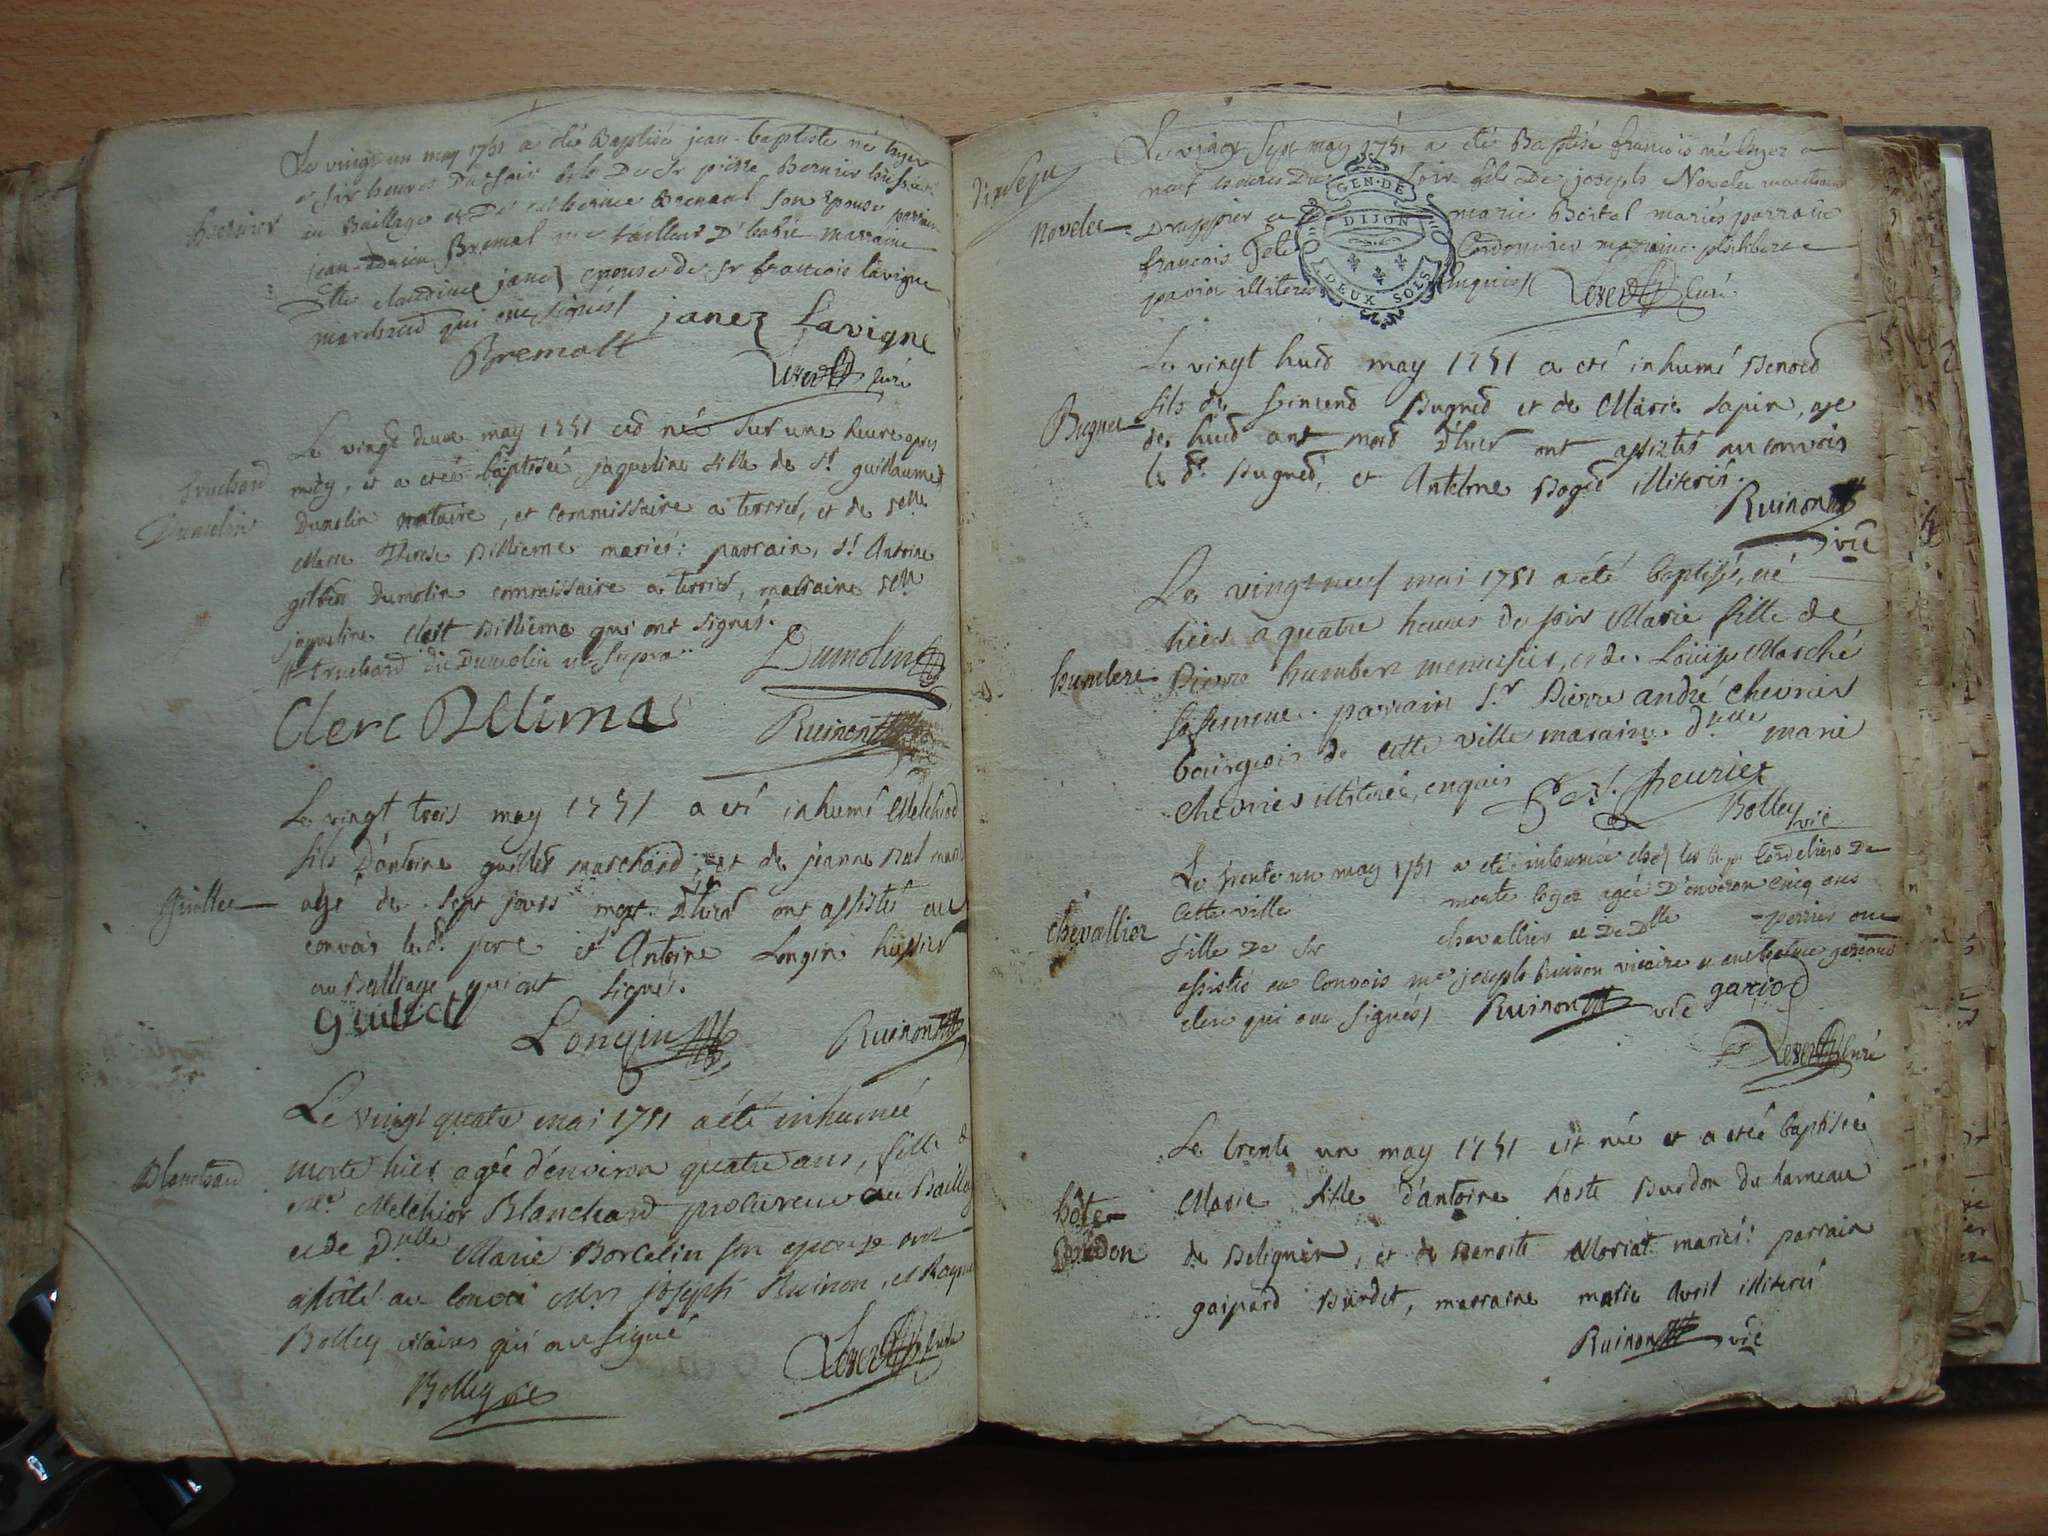 Le vingt un may 1751 a été Baptisé jean-baptiste né hyer
a six heures Du soir fils De Sr pierre Bernier huissier
Bernier
au Baillage et De catherine Bremal son Epouse parrain
jean-Adrien Bremal me tailleur D'habit marraine
claudine janez epouse de Sr francois lavigne
marchand qui ont signés
janez Lavigne
Bremalt
curé
Le vingt deux may 1751 est née sur une heure apres
midy, et a eteé baptiseé jaqueline fille de Sr guillaume
truchard
Dumolin
Dumolin notaire, et commissaire a terrier, et de delle
Marie Therese Billieme mariés: parrain, Sr Antoine
Dumolin commissaire a terrier, marraine delle
jaqueline Billieme qui ont signés.
truchard dit Dumolin ut supra
Dumolin
Clerc Bellime
Ruinon
Le vingt trois may 1751 a eté inhumé Melchiod
fils D'antoine guillet marchand, et de jeanne
Guillet
agé de sept jours mort d'hier ont assistés au
convois le dt pere et Antoine Longin huissier
au Balliage qui ont signés.
Guillet
Longin
Ruinon
Le vingt quatre mai 1751 a été inhumée
Blanchard
morte hier agée d'environ quatre ans, fille de
Me Melchior Blanchard procureur au Bailla
et de Dlle Marie Borcelin son epouse ont
assisté au convoi Mrs joseph Ruinon, et
Bolley vicaires qui ont signé
Bolley vic
Le vingt sept may 1751 a été Baptisé francois né hyer a
neuf heures Du soir fils De joseph Novelee marchand
GEN. DE
DIJON
DEUX SOLS
Novelee
Drappier et marie Bertal mariés parrain
francois cordonnier marraine philiberte
illiteres enquis
curé
Le vingt huid may 1751 a eté inhumé Benoed
fils de Vincend Bugned et de Marie sapin, age
Bugnet
de huid ans mord d'hier ont assistés au convois
le dt Bugned, et Antelme illiterés.
Ruinon
vic
Le vingt neuf mai 1751 a été baptisé, né
hier a quatre heures du soir Marie fille de
humbert
Pierre humbert menuisier, et de Louise Marché
sa femme. parrain Sr Pierre andré Chevrier
bourgeois de cette ville maraine dlle marie
Chevrier illiterée, enquis
Bolley
vic
Le trente un may 1751 a été inhumée chez les Cordeliers De
cette ville morte hyer agée D'environ cinq ans
Chevallier
fille De Sr chevallier et De Dlle perrier ont
assistés au convois me joseph Ruinon vicaire et
clerc qui ont signés
Ruinon vic
curé
Le trente un may 1751 est née et a eteé baptiseé
hôte
Burdon
Marie fille d'antoine hoste Burdon du hameau
de Belignin, et de Benoite Moriat mariés: parrain
gaspard Burdet, marraine marie Avril illiterés
Ruinon vic